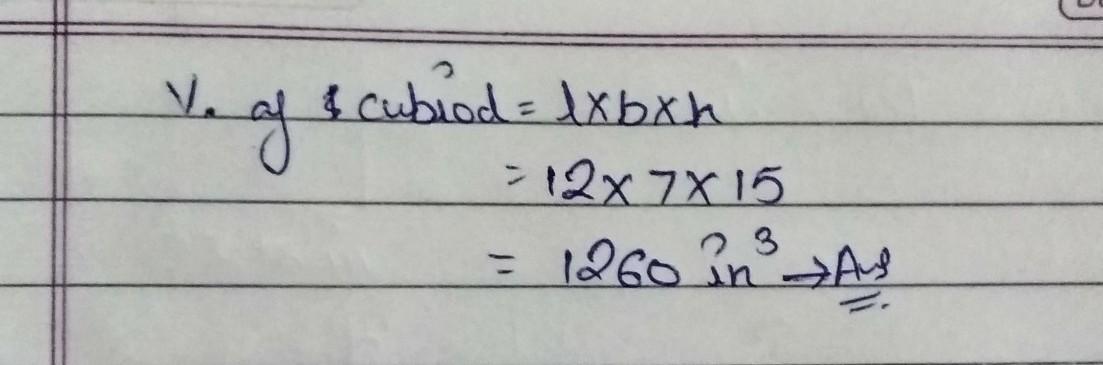 V. of cubiod = l×b×h
= 12×7×15
= 1260 in³ → Ans